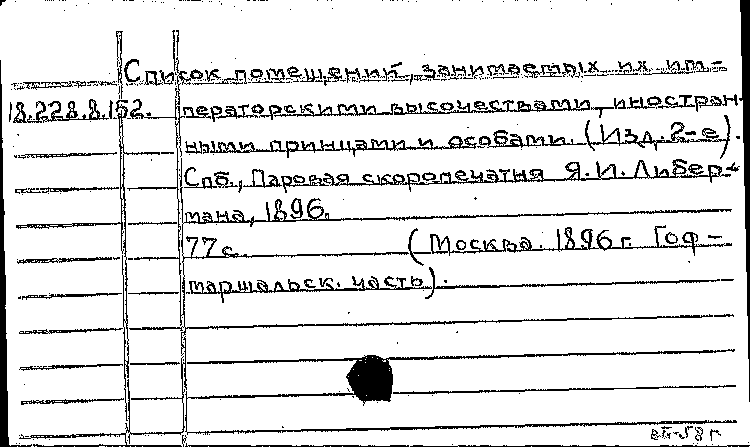 Список помещений, занимаемых их им-
18.228.8.152. ператорскими высочествами, иностран-
ными принцами и особами. (Изд. 2-е).
Спб., Паровая скоропечатня Я.И. Либер-
мана, 1896.
77 с. (Москва. 1896 г. Гоф-
маршальск. часть).